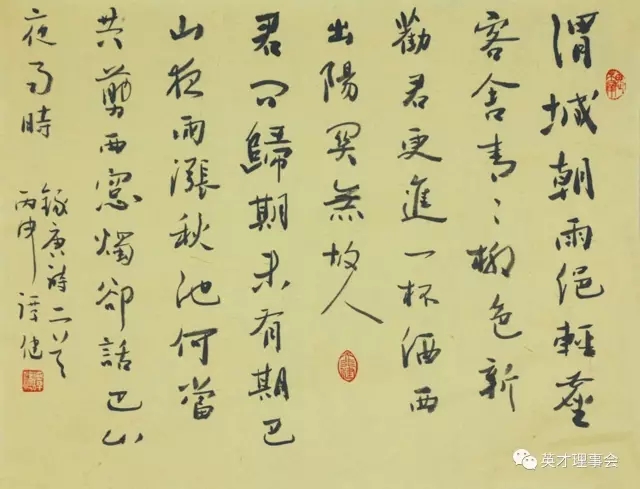 渭城朝雨浥輕塵
客舍青々柳色新
勸君更進一杯酒西
出陽関無故人
君問歸期未有期巴
山夜雨漲秋池何當
共剪西窓燭卻話巴山
夜雨時
錄唐詩二首
丙申 譚健
英才理事会